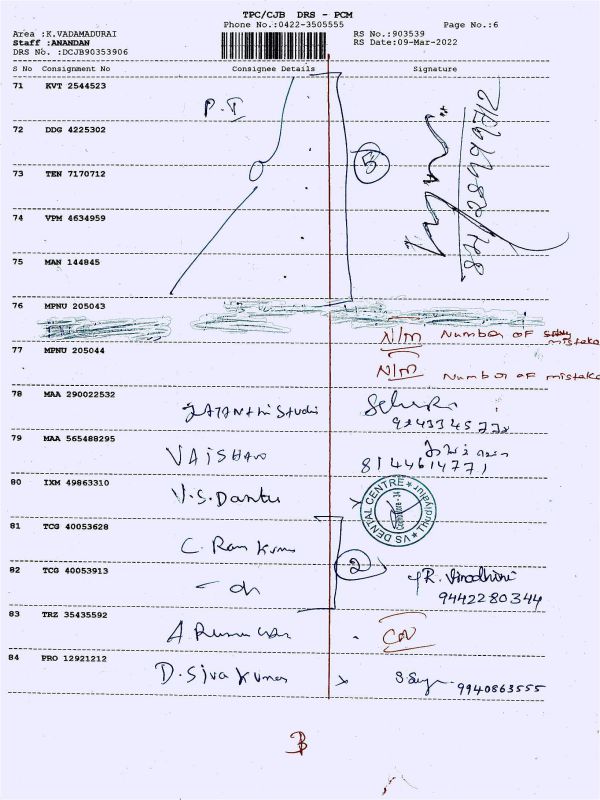 TPC/CJB DRS - PCM
Phone No.:0422-3505555 Page No.:6
Area :K.VADAMADURAI RS No.:903539
Staff :ANANDAN RS Date:09-Mar-2022
DRS No. :DCJB90353906
S No Consignment No Consignee Details Signature
71 KVT 2544523
P.I
72 DDG 4225302
73 TEN 7170712
5
74 VPM 4634959
75 MAN 144845
76 MPNU 205043
N/M Number of mistake
77 MPNU 205044
N/M Number of mistake
78 MAA 290022532
79 MAA 565488295
VAISHNAV
8144614771
80 IXM 49863310
V.S.Dental
VS DENTAL CENTRE
Coimbatore - 34
81 TCG 40053628
C. Ram Kumar
2
82 TCG 40053913
R. Vinodhini
9442280344
83 TRZ 35435592
84 PRO 12921212
D. Siva Kumar
9940863555